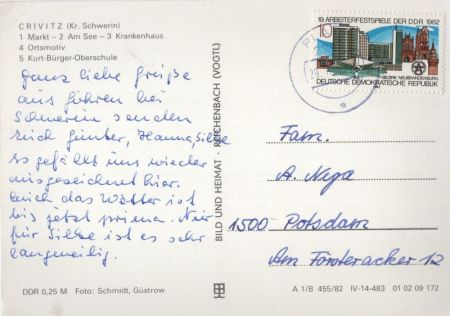 CRIVITZ (Kr. Schwerin)
1 Markt – 2 Am See – 3 Krankenhaus
4 Ortsmotiv
5 Kurt-Bürger-Oberschule
Ganz liebe Grüße
aus bei
Schwerin senden
Euch Günter, Hanna, Silke
Es gefällt uns wieder
ausgezeichnet hier.
Auch das Wetter ist
bis jetzt prima. Nur
für Silke ist es sehr
langweilig.
DDR 0,25 M Foto: Schmidt, Güstrow
BILD UND HEIMAT · REICHENBACH (VOGTL)
19. ARBEITERFESTSPIELE DER DDR 1982
10
BEZIRK NEUBRANDENBURG
DEUTSCHE DEMOKRATISCHE REPUBLIK
a
Fam.
A.
1500 Potsdam
Am Försteracker 12
A 1/B 455/82 IV-14-483 01 02 09 172